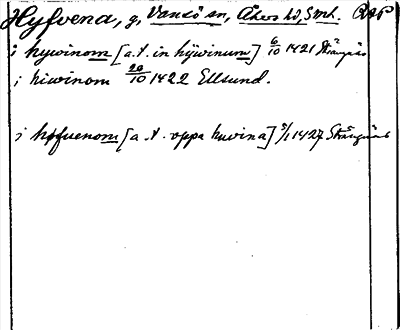 Hyfvena, g, Vansö sn, Åkers hd, Smt. RAP
i hywinom [a.t. in hÿwinum] 6/10 1421 Strängnäs
i hiwinom 20/10 1422 Ellsund.
i hyfuenom [a.t. oppa huvina] 5/1 1427 Strängnäs